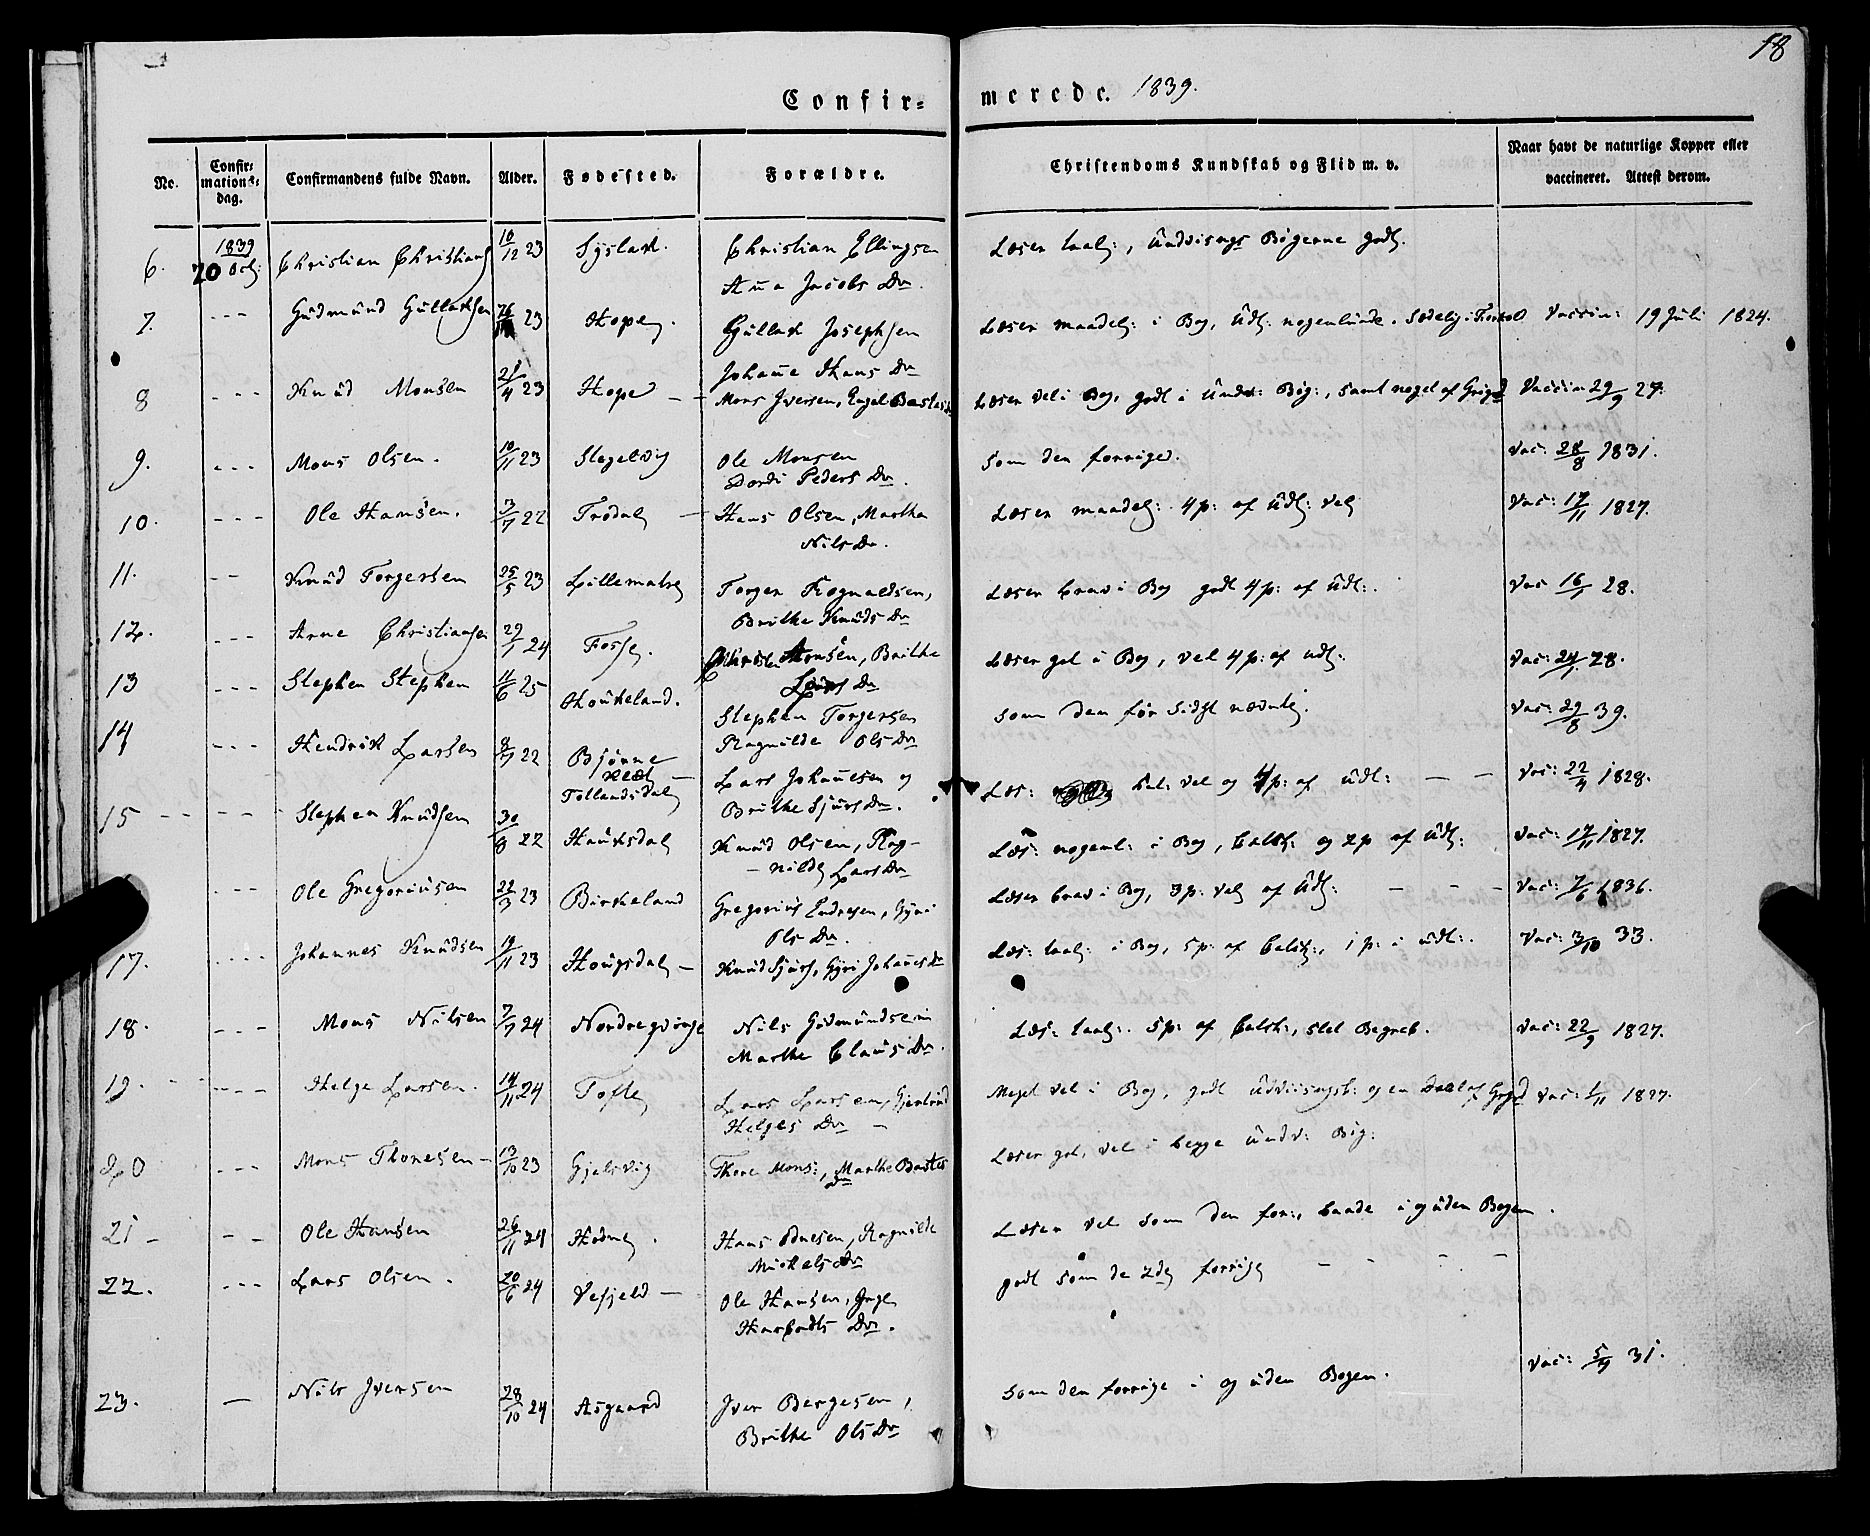 18
Confir=
merede. 1839.
No.
Confir=
mations=
dag.
Confirmandens fulde Navn.
Alder.
Fødested.
Forældre.
Christendoms Kundskab og Flid m. v.
Naar havt de naturlige Kopper eller
vaccineret. Attest derom.
6. 1839 20 Oct: Christian Christians 10/12 23 Systach. Christian Ellingsen
Anna Jacobs Dr. Læser taal:, Undvisnings Bøgerne godt.
7. --- Gudmund Gullachsen 23 Hope. Gullach Josephsen
Johanne Hans Dr Læser maadel: i Bog, Udl: nogenlunde. Sædelig i Forhold Vaccin: 19 Juli 1824.
8 --- Knud Monsen 21/4 23 Hope -- Mons Iversen, Engel Bastes Dr Læser vel i Bog, godt i Undv: Bøg:, samt noget af Vaccin 29/9 27.
9. --- Mons Olsen. 10/11 23 Slegelvig Ole Monsen
Dordi Peders Dr. som den forrige. Vac: 28/8 1831.
10. --- Ole Hansen. 3/7 22 Trodal - Hans Olsen, Martha
Nils Dr. Læser maadel: 4 p: af Udl: vel Vac: 17/11 1827.
11. -- Knud Torgersen 25/5 23 Lillematre Torger Rognaldsen,
Brithe Knuds Dr Læser brav i Bog godt 4 p: af Udl:. Vac 16/1 28.
12. --- Arne Christiansen 29/1 24 Fosse. Monsen, Brithe
Lars Dr Læser got i Bog, vel 4 p: af udl: Vac: 24/1 28.
13 --- Stephen Stephen 11/6 25 Houkeland. Stephen Torgersen
Ragnilde Ols Dr som den før sidst nævnte. Vac: 29/8 39.
14 --- Hendrich Larsen 8/7 22 Bjønne
Tollandsdal Lars Johannesen og
Brithe Sjurs Dr. Læs: vel og 4 p: af udl: -- Vac: 22/4 1828.
15 -- -- - Stephen Knudsen 30/8 22 Hauksdal Knud Olsen, Rag-
- nilde Lars Dr Læs: nogenl: i Bog, og 2 p af Udl: Vac: 17/11 1827.
--- Ole Gregoriusen 22/3 23 Birkeland Gregorius Endresen, Gyri
Ols Dr. Læser brav i Bog, 3 p: vel af Udl: - - - Vac: 7/6 1836.
17. ---- Johannes Knudsen 19/11 23 Hougsdal - Knud Sjurs, Gyri Johannes Dr Læs: taal: i Bog, 5 p: af 1 p: i udl:. Vac: 3/10 33.
18. --- Mons Nilsen 7/7 24 Nordregvinge Nils Gudmundsen
Marthe Claus Dr. Læs: taal:. 5 p: af slet Begreb. Vac: 22/9 1827.
19. --- Helge Larsen. 14/11 24 Tofte Lars Larsen, Gjertrud
Helges Dr - Meget vel i Bog, godt Udviisnings: og en Deel af Vac: 1/11 1827.
20 --- Mons Thoresen- 13/10 23 Gjelsvig Thore Mons:, Marthe Bastes
Dr Læser got, vel i begge Undv: Bøg:
21 - - - Ole Hansen 26/11 24 Hodne. Hans Ednesen, Ragnilde
Michels Dr Læser vel som den for:, baade i og uden Bogen.
22. --- Lars Olsen. 20/6 24 Vefjeld - Ole Hansen, Inge
Dr. godt som de 2de forrige - - - -
23. - Nils Iversen 28/10 24 Asgaard Iver Børgesen,
Brithe Ols Dr som den forrige i og uden Bogen. Vac: 5/9 31.